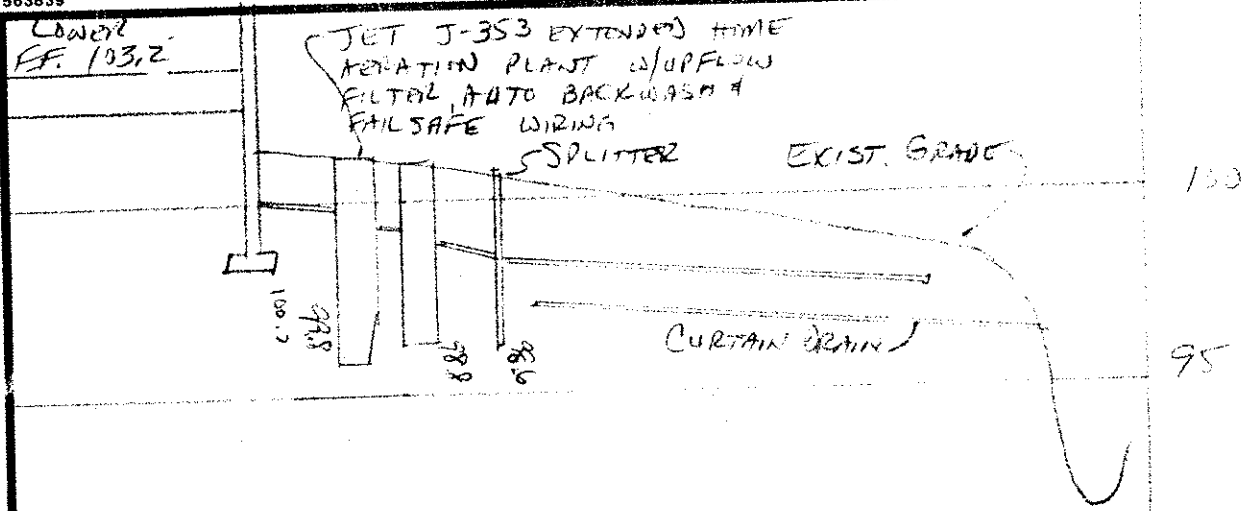 563839
LOWER
F.F. 103.2
JET J-353 EXTENDED HOME
AERATION PLANT W/UPFLOW
FILTER, AUTO BACKWASH &
FAILSAFE WIRING
SPLITTER
EXIST. GRADE
100
CURTAIN DRAIN
95
99.8
98.8